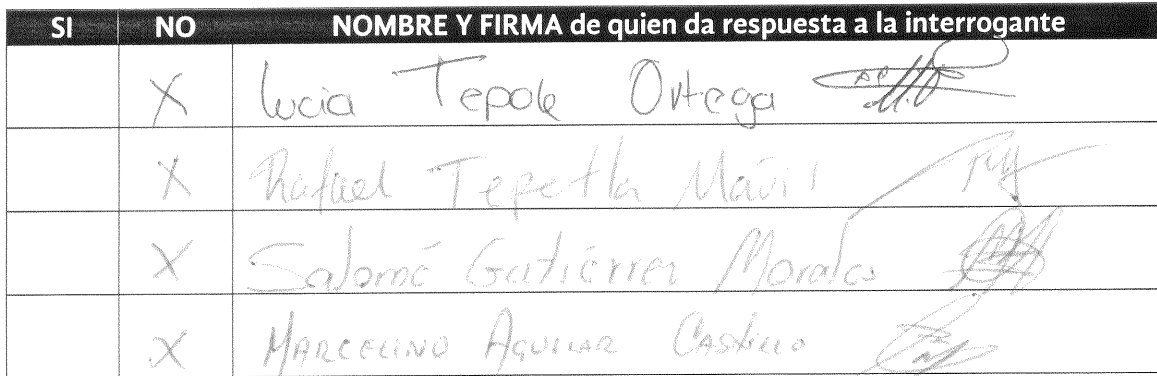 SI NO NOMBRE Y FIRMA de quien da respuesta a la interrogante
X Lucia Tepole Ortega
X Rafael Tepetla Mávil
X Salomé Gutiérrez Morales
X MARCELINO AGUILAR CASTILLO